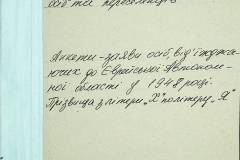 осіб та переселенців
Анкети-заяви осіб, від'їжджа-
ючих до Єврейської Автоном-
ної області у 1948 році.
Прізвища з літери „Х" по літеру „Я"